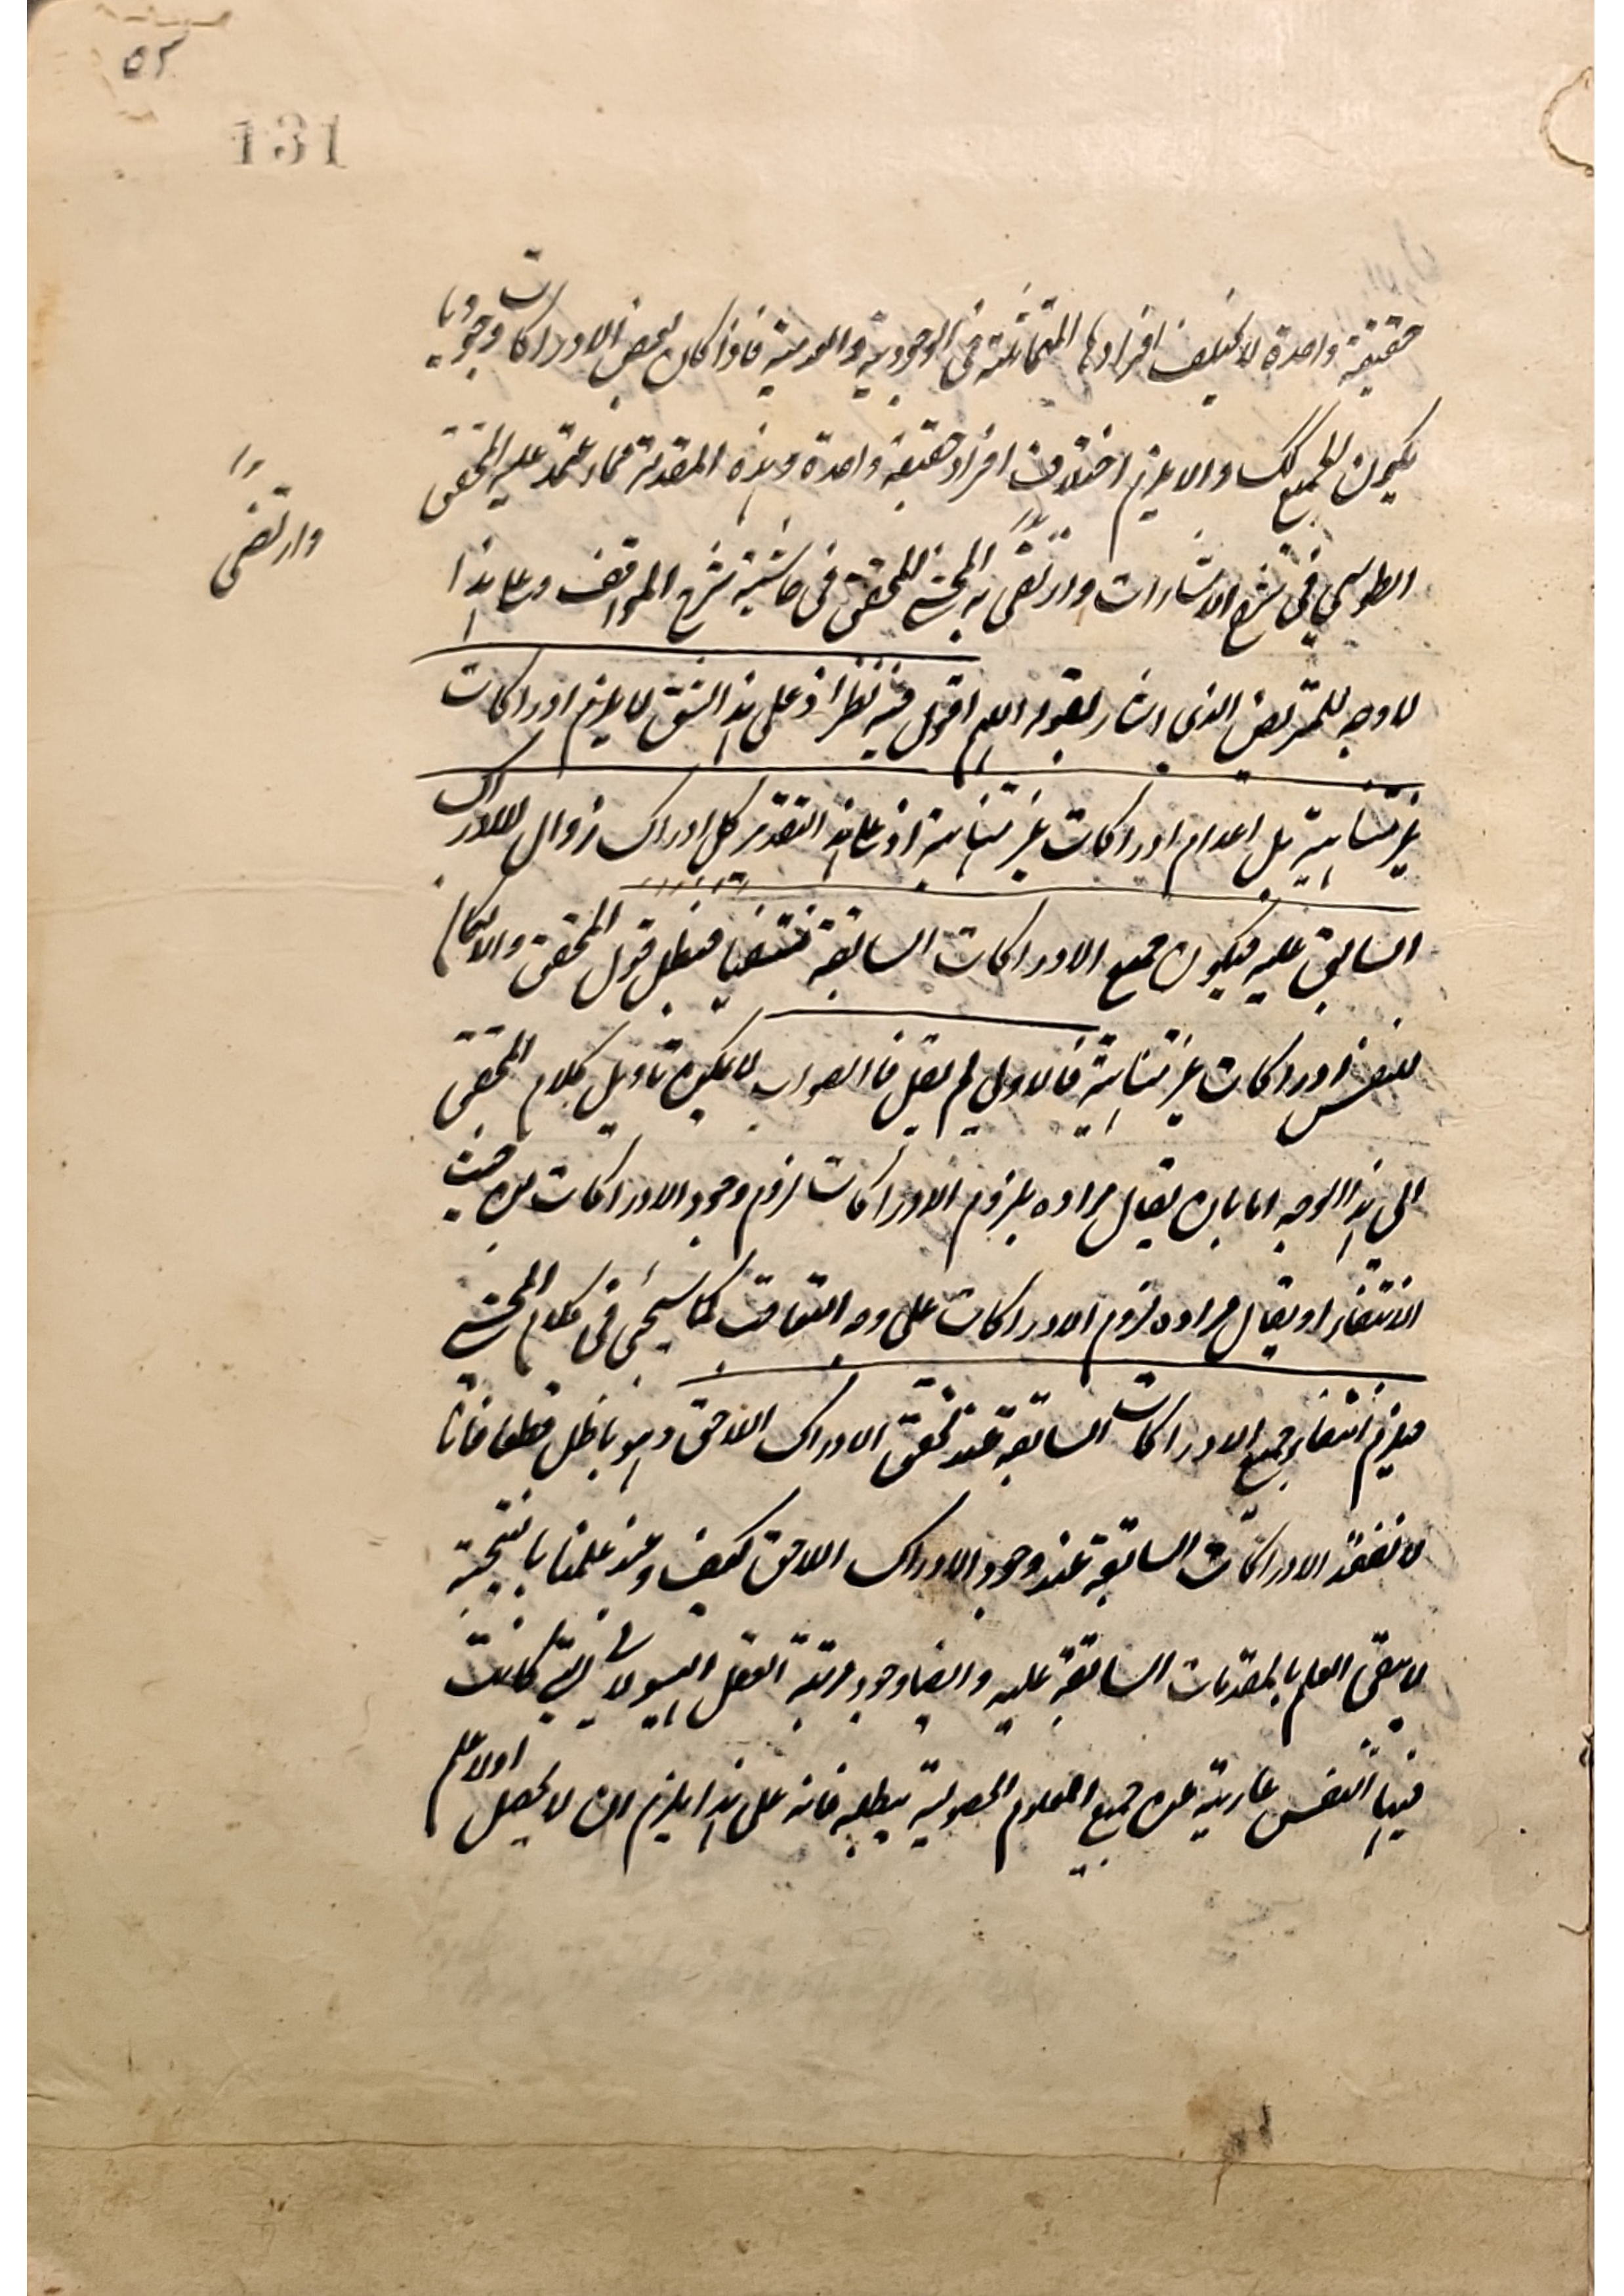 ٥٢
131
حقيقة واحدة لا يختلف افرادها المتماثلة في الوجودية والعدمية فاذا كان بعض الادراكات وجوديا
يكون الجميع كك والا يلزم اختلاف افراد حقيقة واحدة وهذه المقدمة مما اعتمد عليه المحقق
الطوسي في شرح الاشارات وارتضى به المحشي المحقق في حاشية شرح المواقف وعلى هذا
وارتضى
لا وجه للتمريض الذي اشار بقوله اللهم اقول فيه نظر اذ على هذا الشق لا يلزم ادراكات
غير متناهية بل اعدام ادراكات غير متناهية اذ على هذا التقدير كل ادراك زوال للادراك
السابق عليه فيكون جميع الادراكات السابقة منتفيا فبطل قول المحقق والا لكان
للنفس ادراكات غير متناهية فالاولى لم يقل فالصواب لا يمكن تاويل كلام المحقق
الى هذا الوجه اما بان يقال مراده بلزوم الادراكات لزوم وجود الادراكات من حيث
الانتفاء او يقال مراده لزوم الادراكات على وجه التعاقب كما سيجيء في كلام المحشي
فيلزم انتفاء جميع الادراكات السابقة عند تحقق الادراك اللاحق وهو باطل قطعا فانا
لا نفقد الادراكات السابقة عند وجود الادراك اللاحق كيف وعند علمنا بالنتيجة
لا يبقى العلم بالمقدمات السابقة عليه وايضا وجود مرتبة العقل الهيولاني التي كانت
فيها النفس عارية عن جميع العلوم الحصولية يبطله فانه على هذا يلزم ان لا يحصل اولا علم